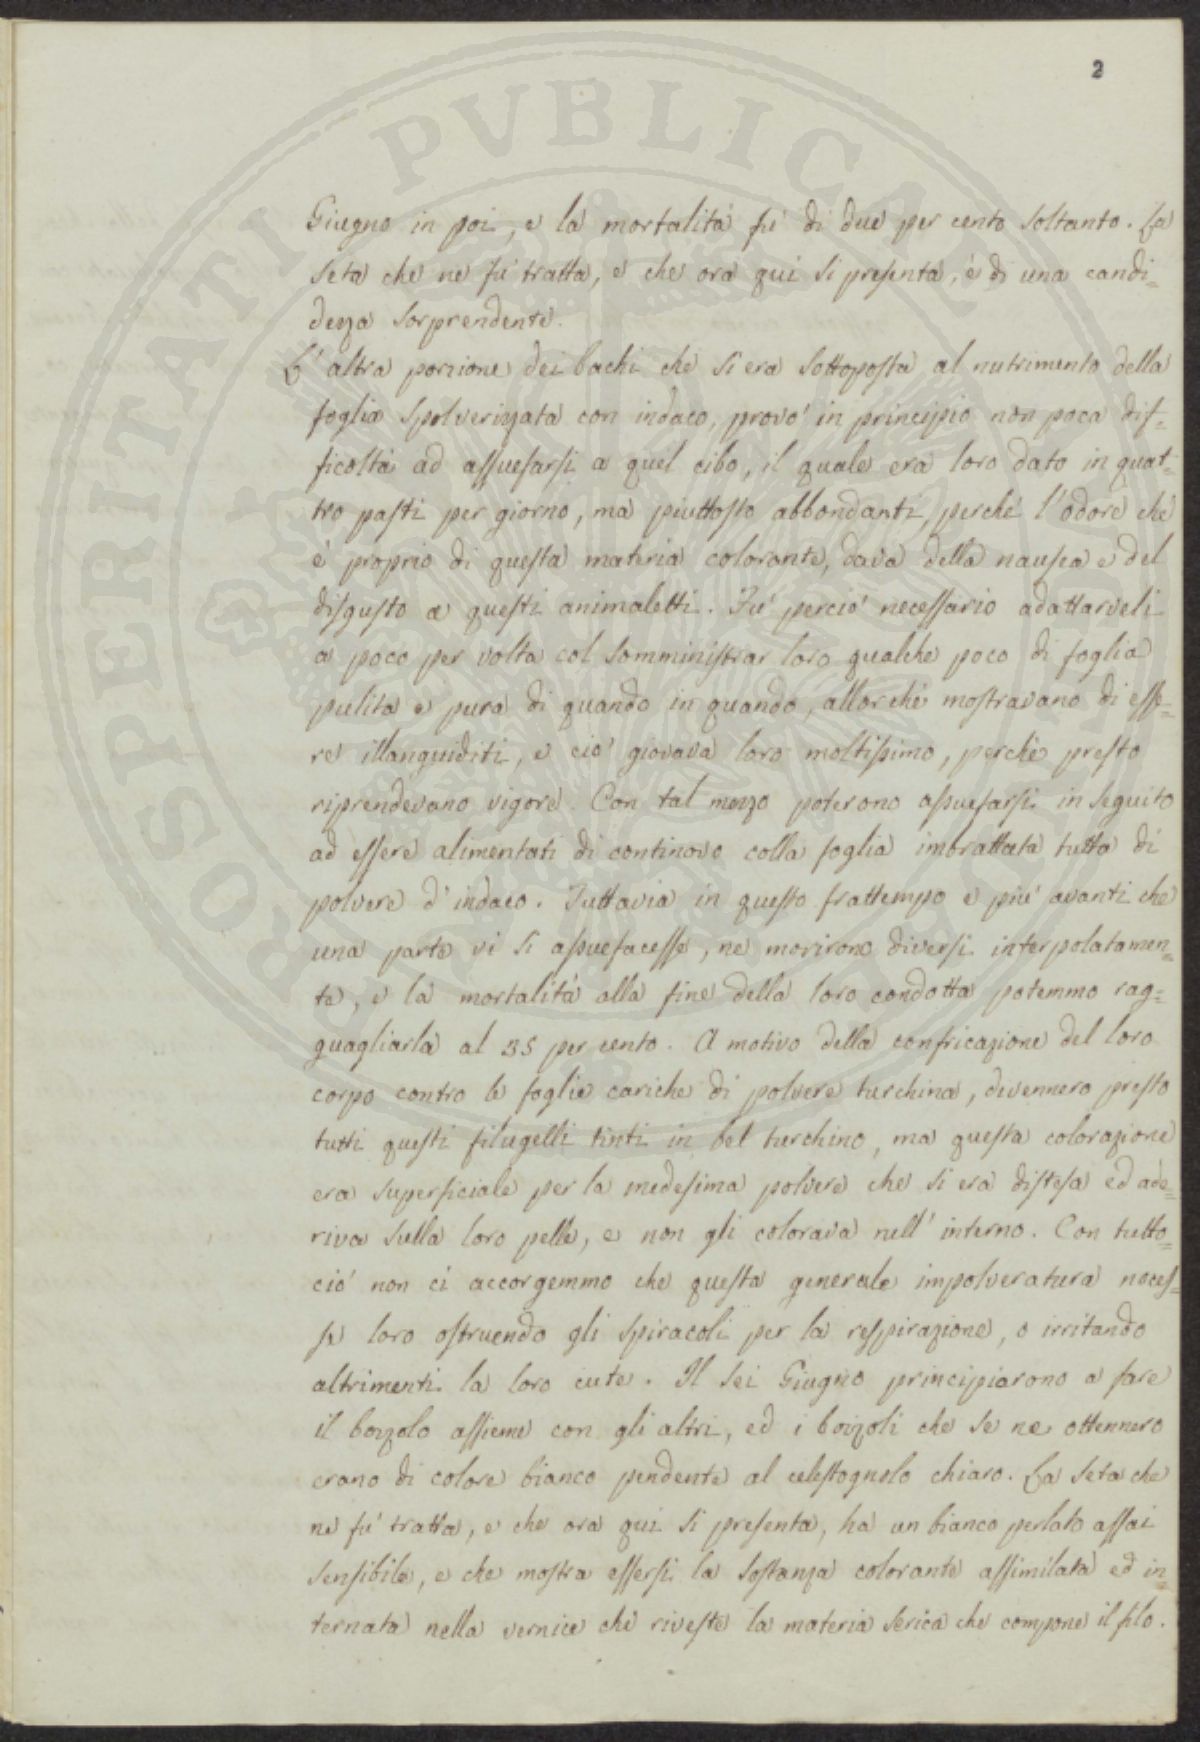 2
PROSPERITATI PUBLICAE
Giugno in poi, e la mortalità fu' di due per cento soltanto. La
seta che ne fu' tratta, e che ora qui si presenta, è di una candi=
dezza sorprendente.
L' altra porzione dei bachi che si era sottoposta al nutrimento della
foglia spolverizzata con indaco, provo' in principio non poca dif=
ficoltà ad assuefarsi a quel cibo, il quale era loro dato in quat=
tro pasti per giorno, ma piuttosto abbondanti, perchè l'odore che
è proprio di questa materia colorante, dava della nausea e del
disgusto a questi animaletti. Fu' percio' necessario adattarveli
a poco per volta col somministrar loro qualche poco di foglia
pulita e pura di quando in quando, allorchè mostravano di esse=
re illanguiditi, e cio' giovava loro moltissimo, perchè presto
riprendevano vigore. Con tal mezzo poterono assuefarsi in seguito
ad essere alimentati di continovo colla foglia imbrattata tutta di
polvere d' indaco. Tuttavia in questo frattempo e piu' avanti che
una parte vi si assuefacesse, ne morirono diversi interpolatamen=
te, e la mortalità alla fine della loro condotta potemmo rag=
guagliarla al 35 per cento. A motivo della confricazione del loro
corpo contro le foglie cariche di polvere turchina, divennero presto
tutti questi filugelli tinti in bel turchino, ma questa colorazione
era superficiale per la medesima polvere che si era distesa ed ade=
riva sulla loro pelle, e non gli colorava nell' interno. Con tutto=
cio' non ci accorgemmo che questa generale impolveratura noces=
se loro ostruendo gli spiracoli per la respirazione, o irritando
altrimenti la loro cute. Il sei Giugno principiarono a fare
il bozzolo assieme con gli altri, ed i bozzoli che se ne ottennero
erano di colore bianco pendente al celestognolo chiaro. La seta che
ne fu' tratta, e che ora qui si presenta, ha un bianco perlato assai
sensibile, e che mostra essersi la sostanza colorante assimilata ed in=
ternata nella vernice che riveste la materia serica che compone il filo.